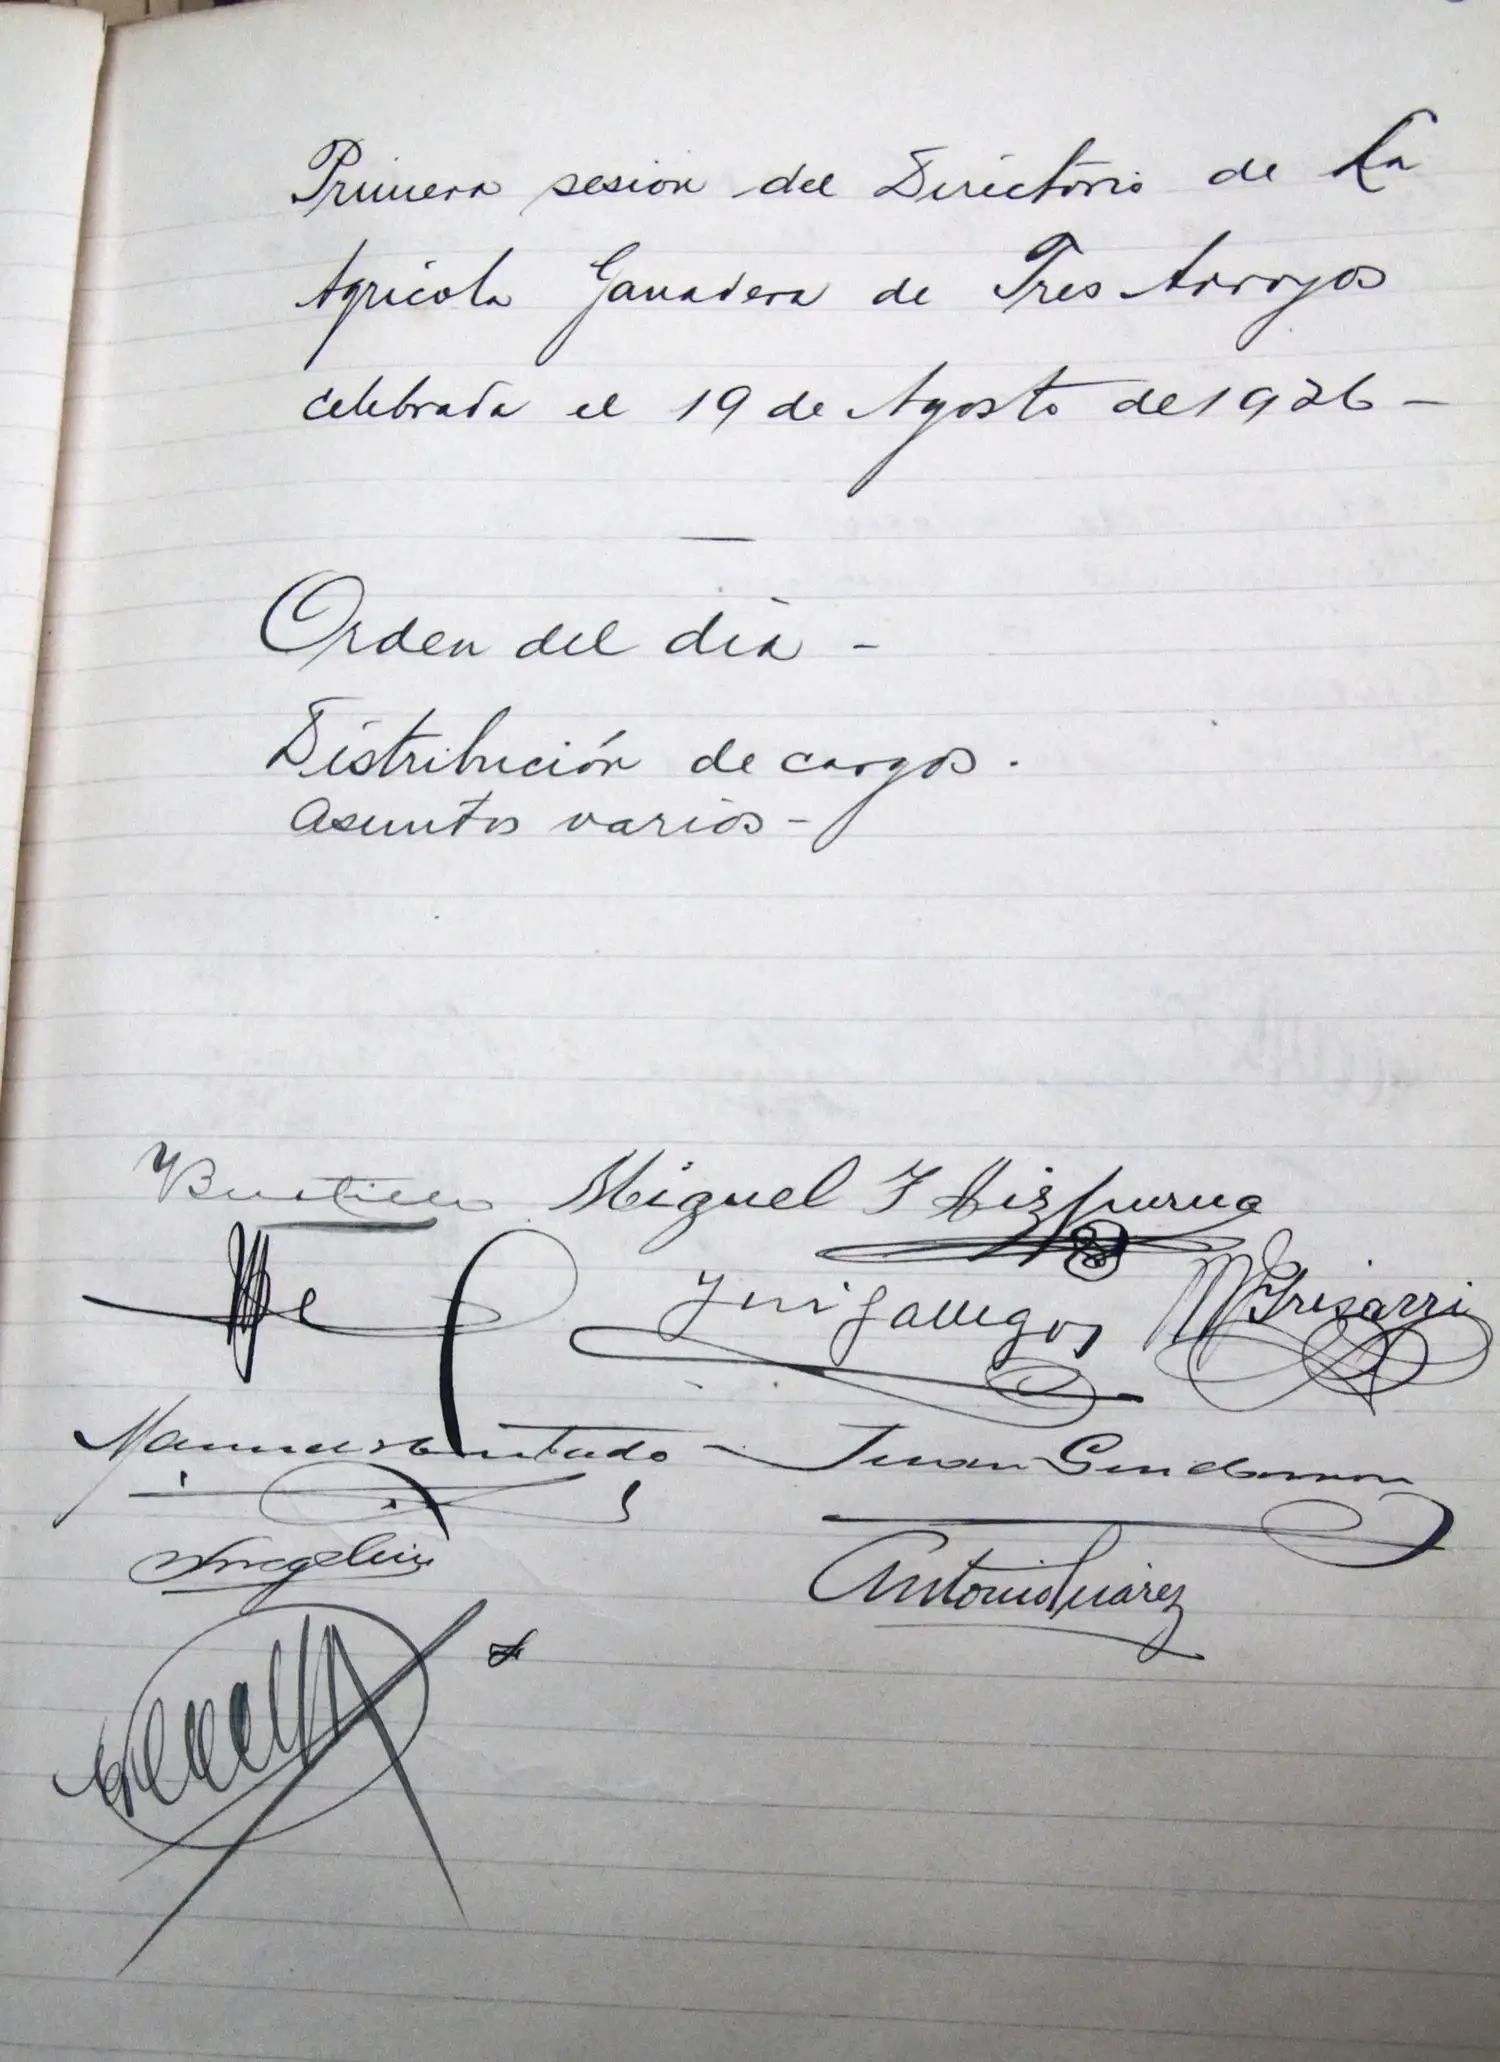 Primera sesion del Directorio de La
Agrícola Ganadera de Tres Arroyos
celebrada el 19 de Agosto de 1926 -
Orden del día -
Distribución de cargos.
Asuntos varios -
Miguel
Gallegos
M Grisarri
Manuel Hurtado
Juan
Antonio Suárez